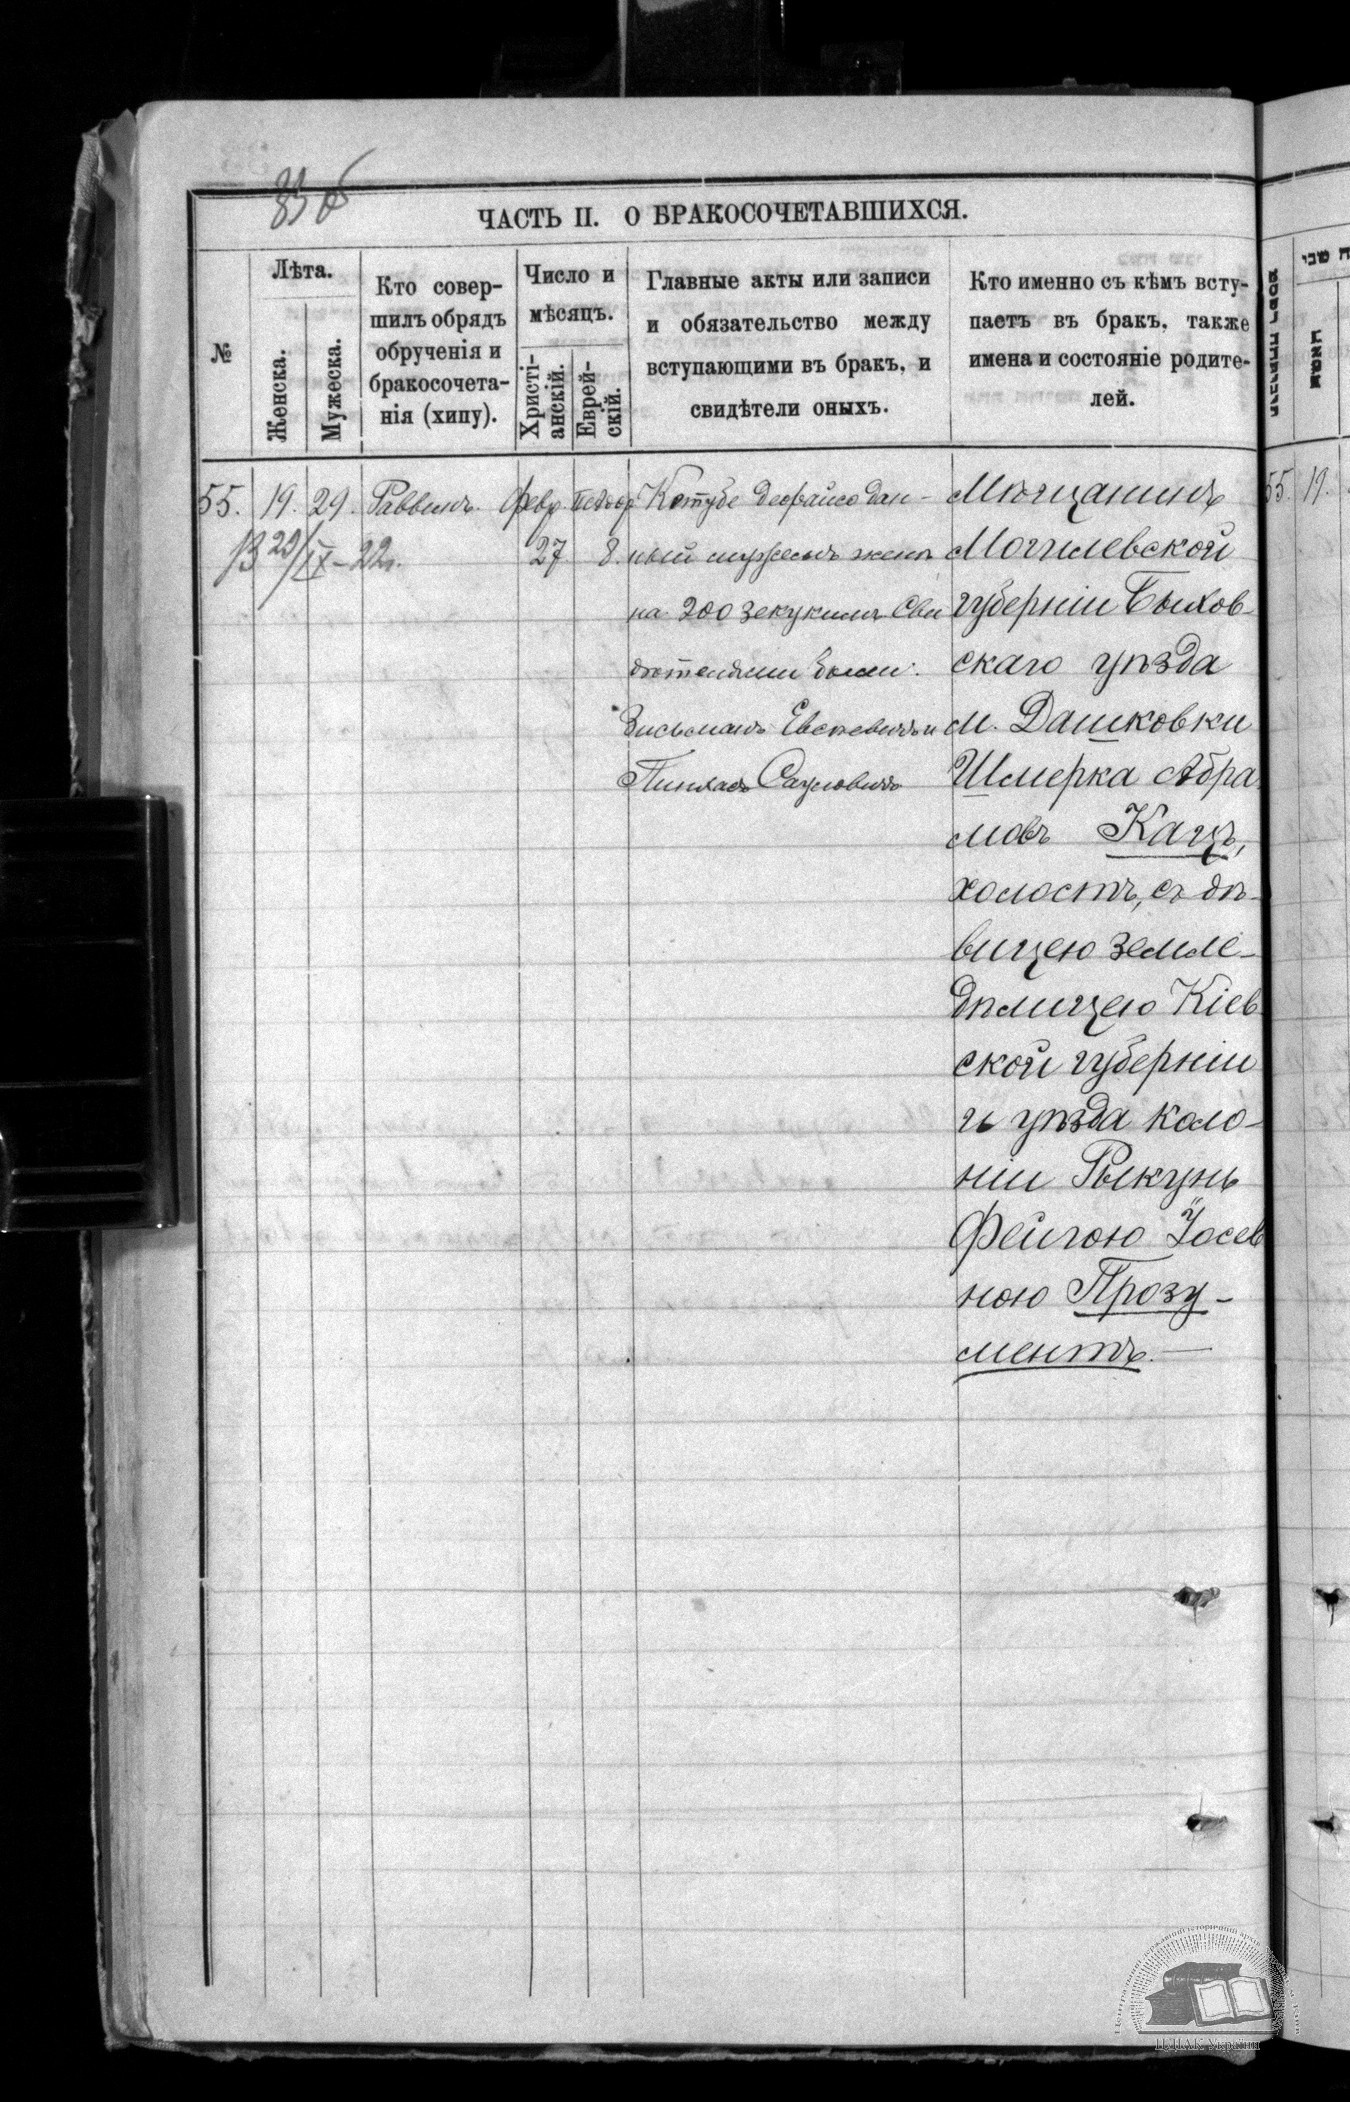 ЧАСТЬ II. О БРАКОСОЧЕТАВШИХСЯ.
№
Лѣта.
Женска.
Мужеска.
Кто совер-
шилъ обрядъ
обрученія и
бракосочета-
нія (хипу).
Число и
мѣсяцъ.
Христі-
анскій.
Еврей-
скій.
Главные акты или записи
и обязательство между
вступающими въ бракъ, и
свидѣтели оныхъ.
Кто именно съ кѣмъ всту-
паетъ въ бракъ, также
имена и состояніе родите-
лей.
55. 19. 29. Раввинъ. Февр.
27 8.
Ктубе деорайсо дан-
ный мужемъ женѣ
на 200 зекукимъ Сви
дѣтелями были:
Зисьманъ Евсѣевичъ и
Пинхасъ Сауловичъ
Мѣщанинъ
Могилевской
губерніи Быхов-
скаго уѣзда
м. Дашковки
Шмерка Абра
мовъ Кацъ,
холостъ, съ дѣ-
вицею земле-
дѣлицею Кіев
ской губерніи
и уѣзда коло-
ніи Рыкунь
Фейгою Іосев
ною Прозу-
ментъ.
55. 19.
ЦДІАК України